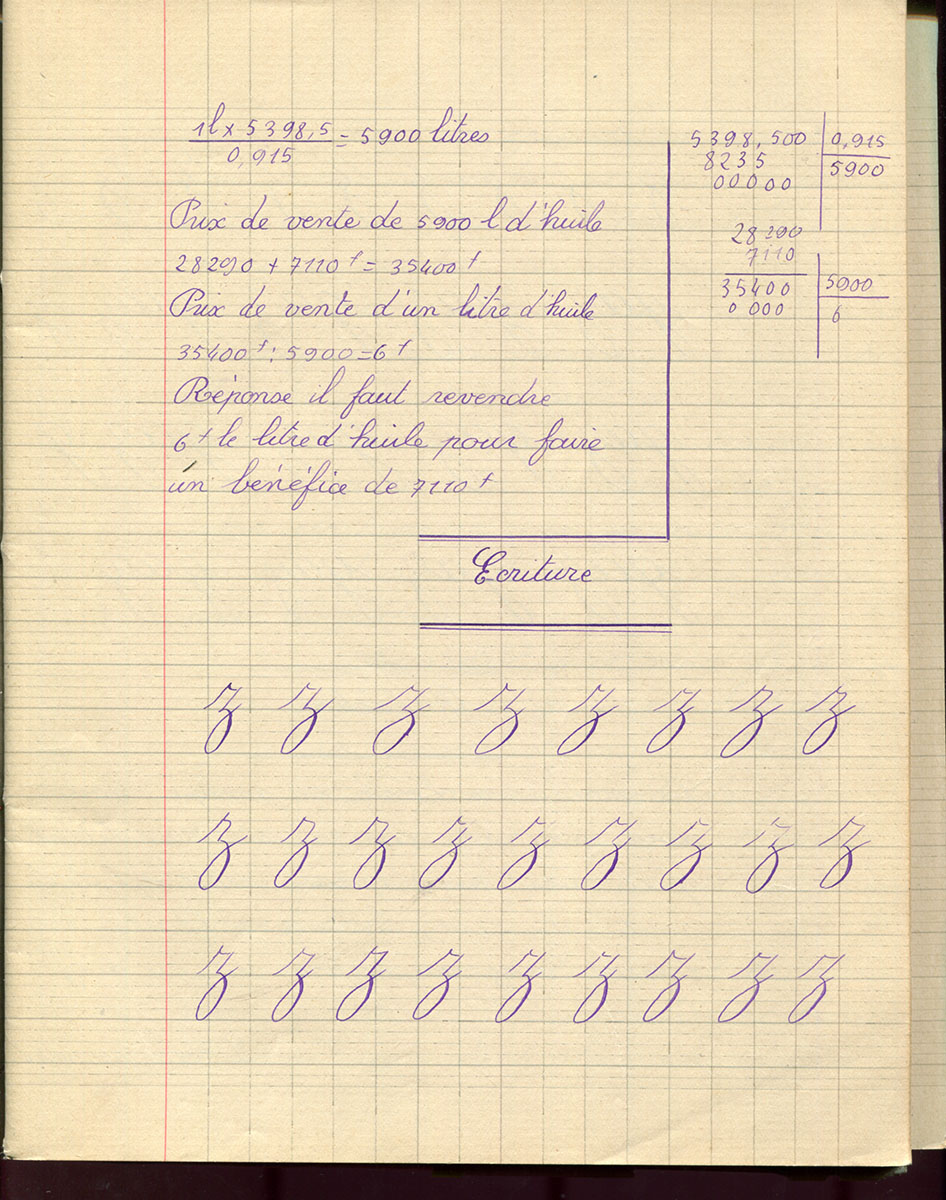 1l x 5398,5 = 5900 litres
0,915
Prix de vente de 5900 l d'huile
28290 + 7110 f = 35400 f
Prix de vente d'un litre d'huile
35400 f : 5900 = 6 f
Réponse il faut revendre
6 f le litre d'huile pour faire
un bénéfice de 7110 f
5398,500 0,915
8235 5900
00000
28290
7110
35400 5900
0 000 6
Ecriture
z z z z z z z z
z z z z z z z z z
z z z z z z z z z